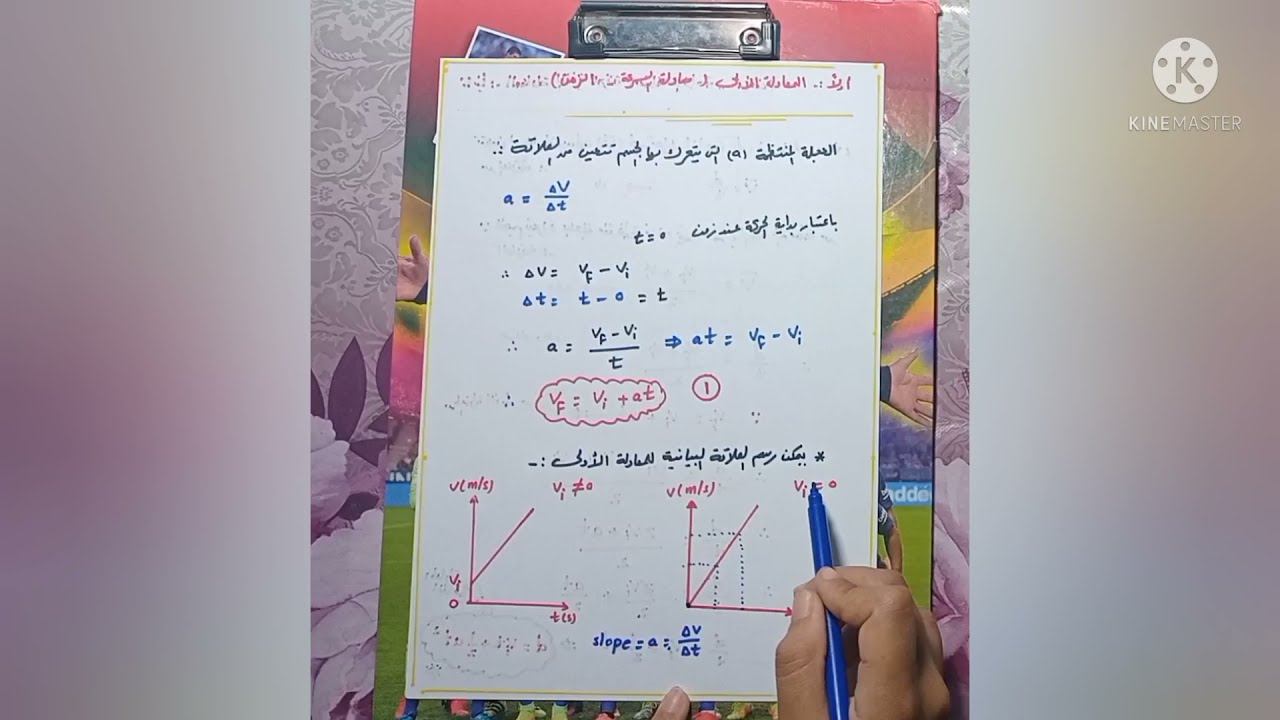 أولاً :- المعادلة الأولى ( معادلة السرعة - الزمن )
العجلة المنتظمة (a) التى يتحرك بها الجسم تتعين من العلاقة :-
a = ΔV/Δt
باعتبار بداية الحركة عند زمن t=0
∴ ΔV = VF - Vi
Δt = t - 0 = t
∴ a = (VF - Vi)/t ⇒ at = VF - Vi
∴ VF = Vi + at ①
* يمكن رسم العلاقة البيانية للمعادلة الأولى :-
V(m/s) Vi ≠ 0
Vi
0
t(s)
V(m/s) Vi = 0
slope = a = ΔV/Δt
KINEMASTER